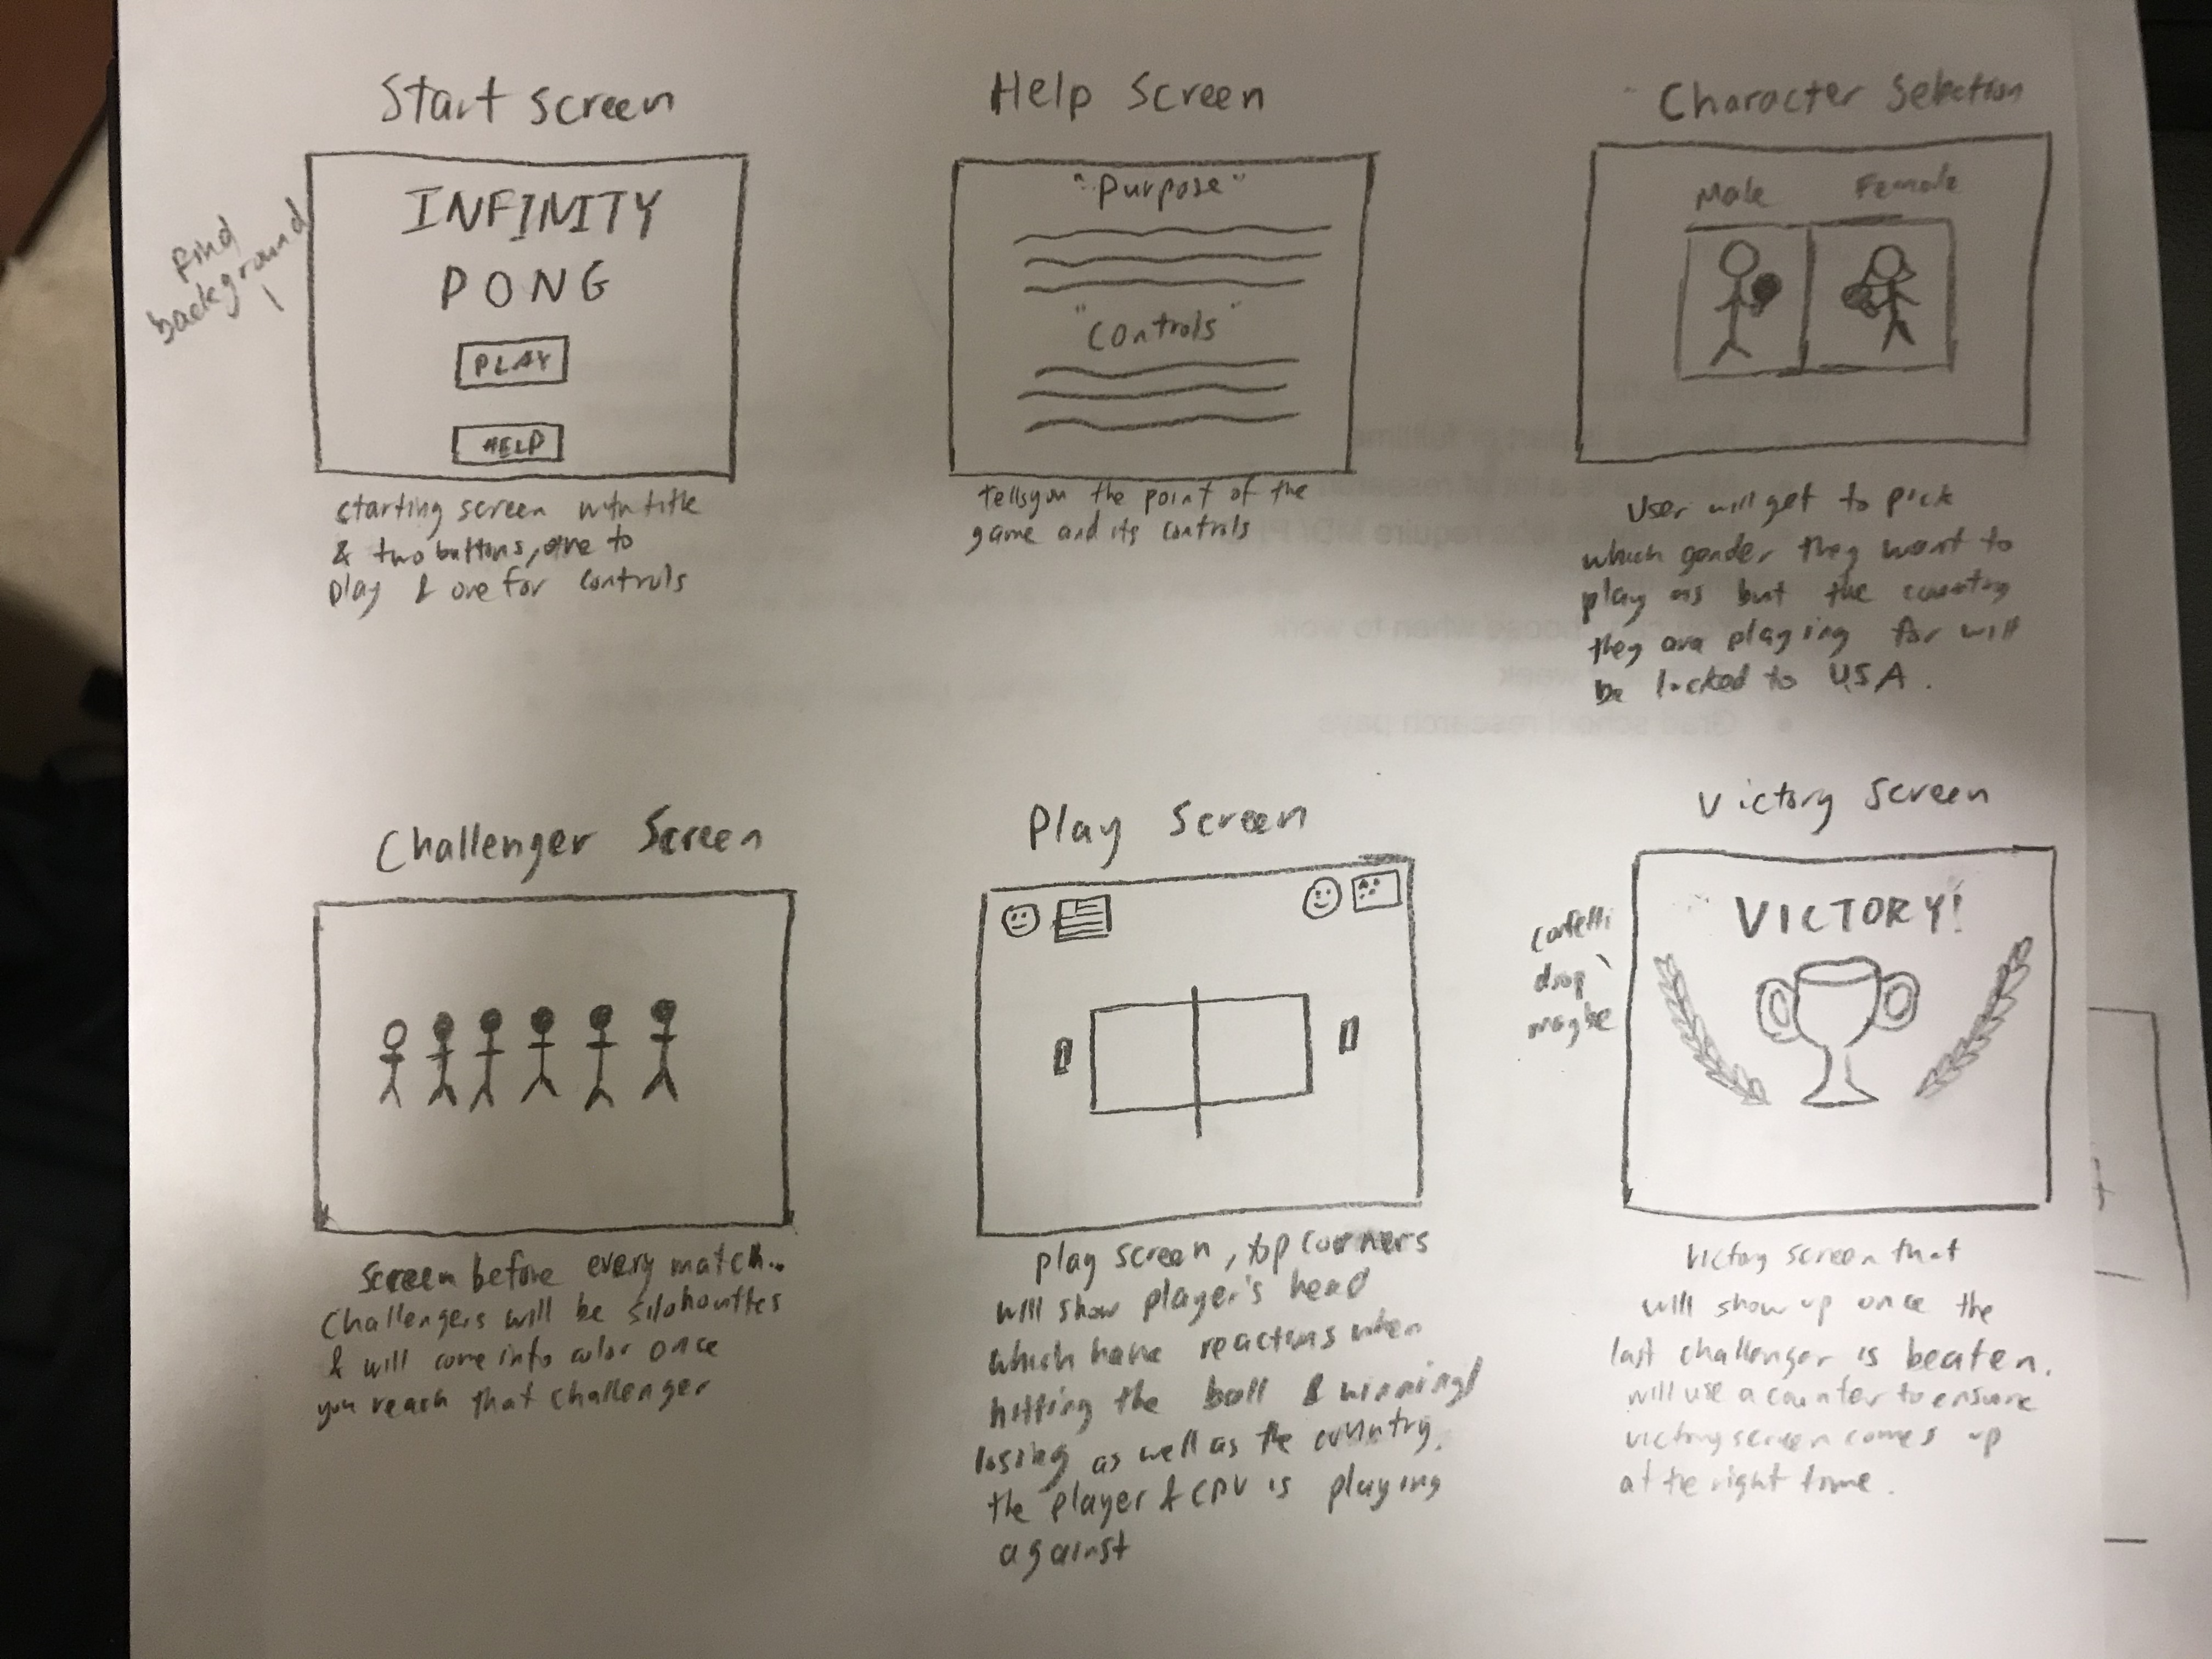 Start screen
INFINITY
PONG
PLAY
HELP
find
background
starting screen with title
& two buttons, one to
play & one for controls
Help Screen
"Purpose"
"Controls"
tells you the point of the
game and its controls
Character Selection
Male Female
User will get to pick
which gender they want to
play as but the country
they are playing for will
be locked to USA.
Challenger Screen
Screen before every match..
Challengers will be silohouttes
& will come into color once
you reach that challenger
Play Screen
play screen, top corners
will show player's head
which have reactions when
hitting the ball & winning/
losing as well as the country.
the player & CPU is playing
against
Victory Screen
VICTORY!
confetti
drop
maybe
Victory screen that
will show up once the
last challenger is beaten.
will use a counter to ensure
victory screen comes up
at the right time.
Grad school research pays